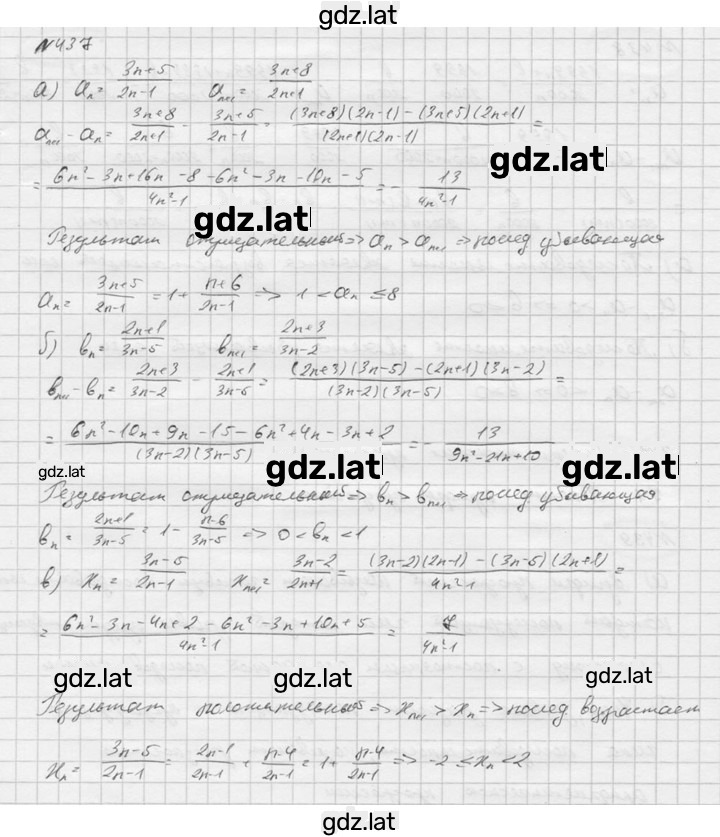 gdz.lat
№437
а) aₙ = (3n+5)/(2n-1)   aₙ₊₁ = (3n+8)/(2n+1)
aₙ₊₁ - aₙ = (3n+8)/(2n+1) - (3n+5)/(2n-1) = ((3n+8)(2n-1) - (3n+5)(2n+1))/((2n+1)(2n-1)) =
gdz.lat
= (6n² - 3n + 16n - 8 - 6n² - 3n - 10n - 5)/(4n²-1) = - 13/(4n²-1)
gdz.lat
Результат отрицательный => aₙ > aₙ₊₁ => послед убывающая
aₙ = (3n+5)/(2n-1) = 1 + (n+6)/(2n-1) => 1 < aₙ ≤ 8
б) bₙ = (2n+1)/(3n-5)   bₙ₊₁ = (2n+3)/(3n-2)
bₙ₊₁ - bₙ = (2n+3)/(3n-2) - (2n+1)/(3n-5) = ((2n+3)(3n-5) - (2n+1)(3n-2))/((3n-2)(3n-5)) =
= (6n² - 10n + 9n - 15 - 6n² + 4n - 3n + 2)/((3n-2)(3n-5)) = - 13/(9n²-21n+10)
gdz.lat gdz.lat gdz.lat
Результат отрицательный => bₙ > bₙ₊₁ => послед убывающая
bₙ = (2n+1)/(3n-5) = 1 - (n-6)/(3n-5) => 0 < bₙ < 1
в) xₙ = (3n-5)/(2n-1)   xₙ₊₁ = (3n-2)/(2n+1) = ((3n-2)(2n-1) - (3n-5)(2n+1))/(4n²-1) =
= (6n² - 3n - 4n + 2 - 6n² - 3n + 10n + 5)/(4n²-1) = 7/(4n²-1)
gdz.lat gdz.lat gdz.lat
Результат положительный => xₙ₊₁ > xₙ => послед возрастает
xₙ = (3n-5)/(2n-1) = (2n-1)/(2n-1) + (n-4)/(2n-1) = 1 + (n-4)/(2n-1) => -2 ≤ xₙ < 2
gdz.lat